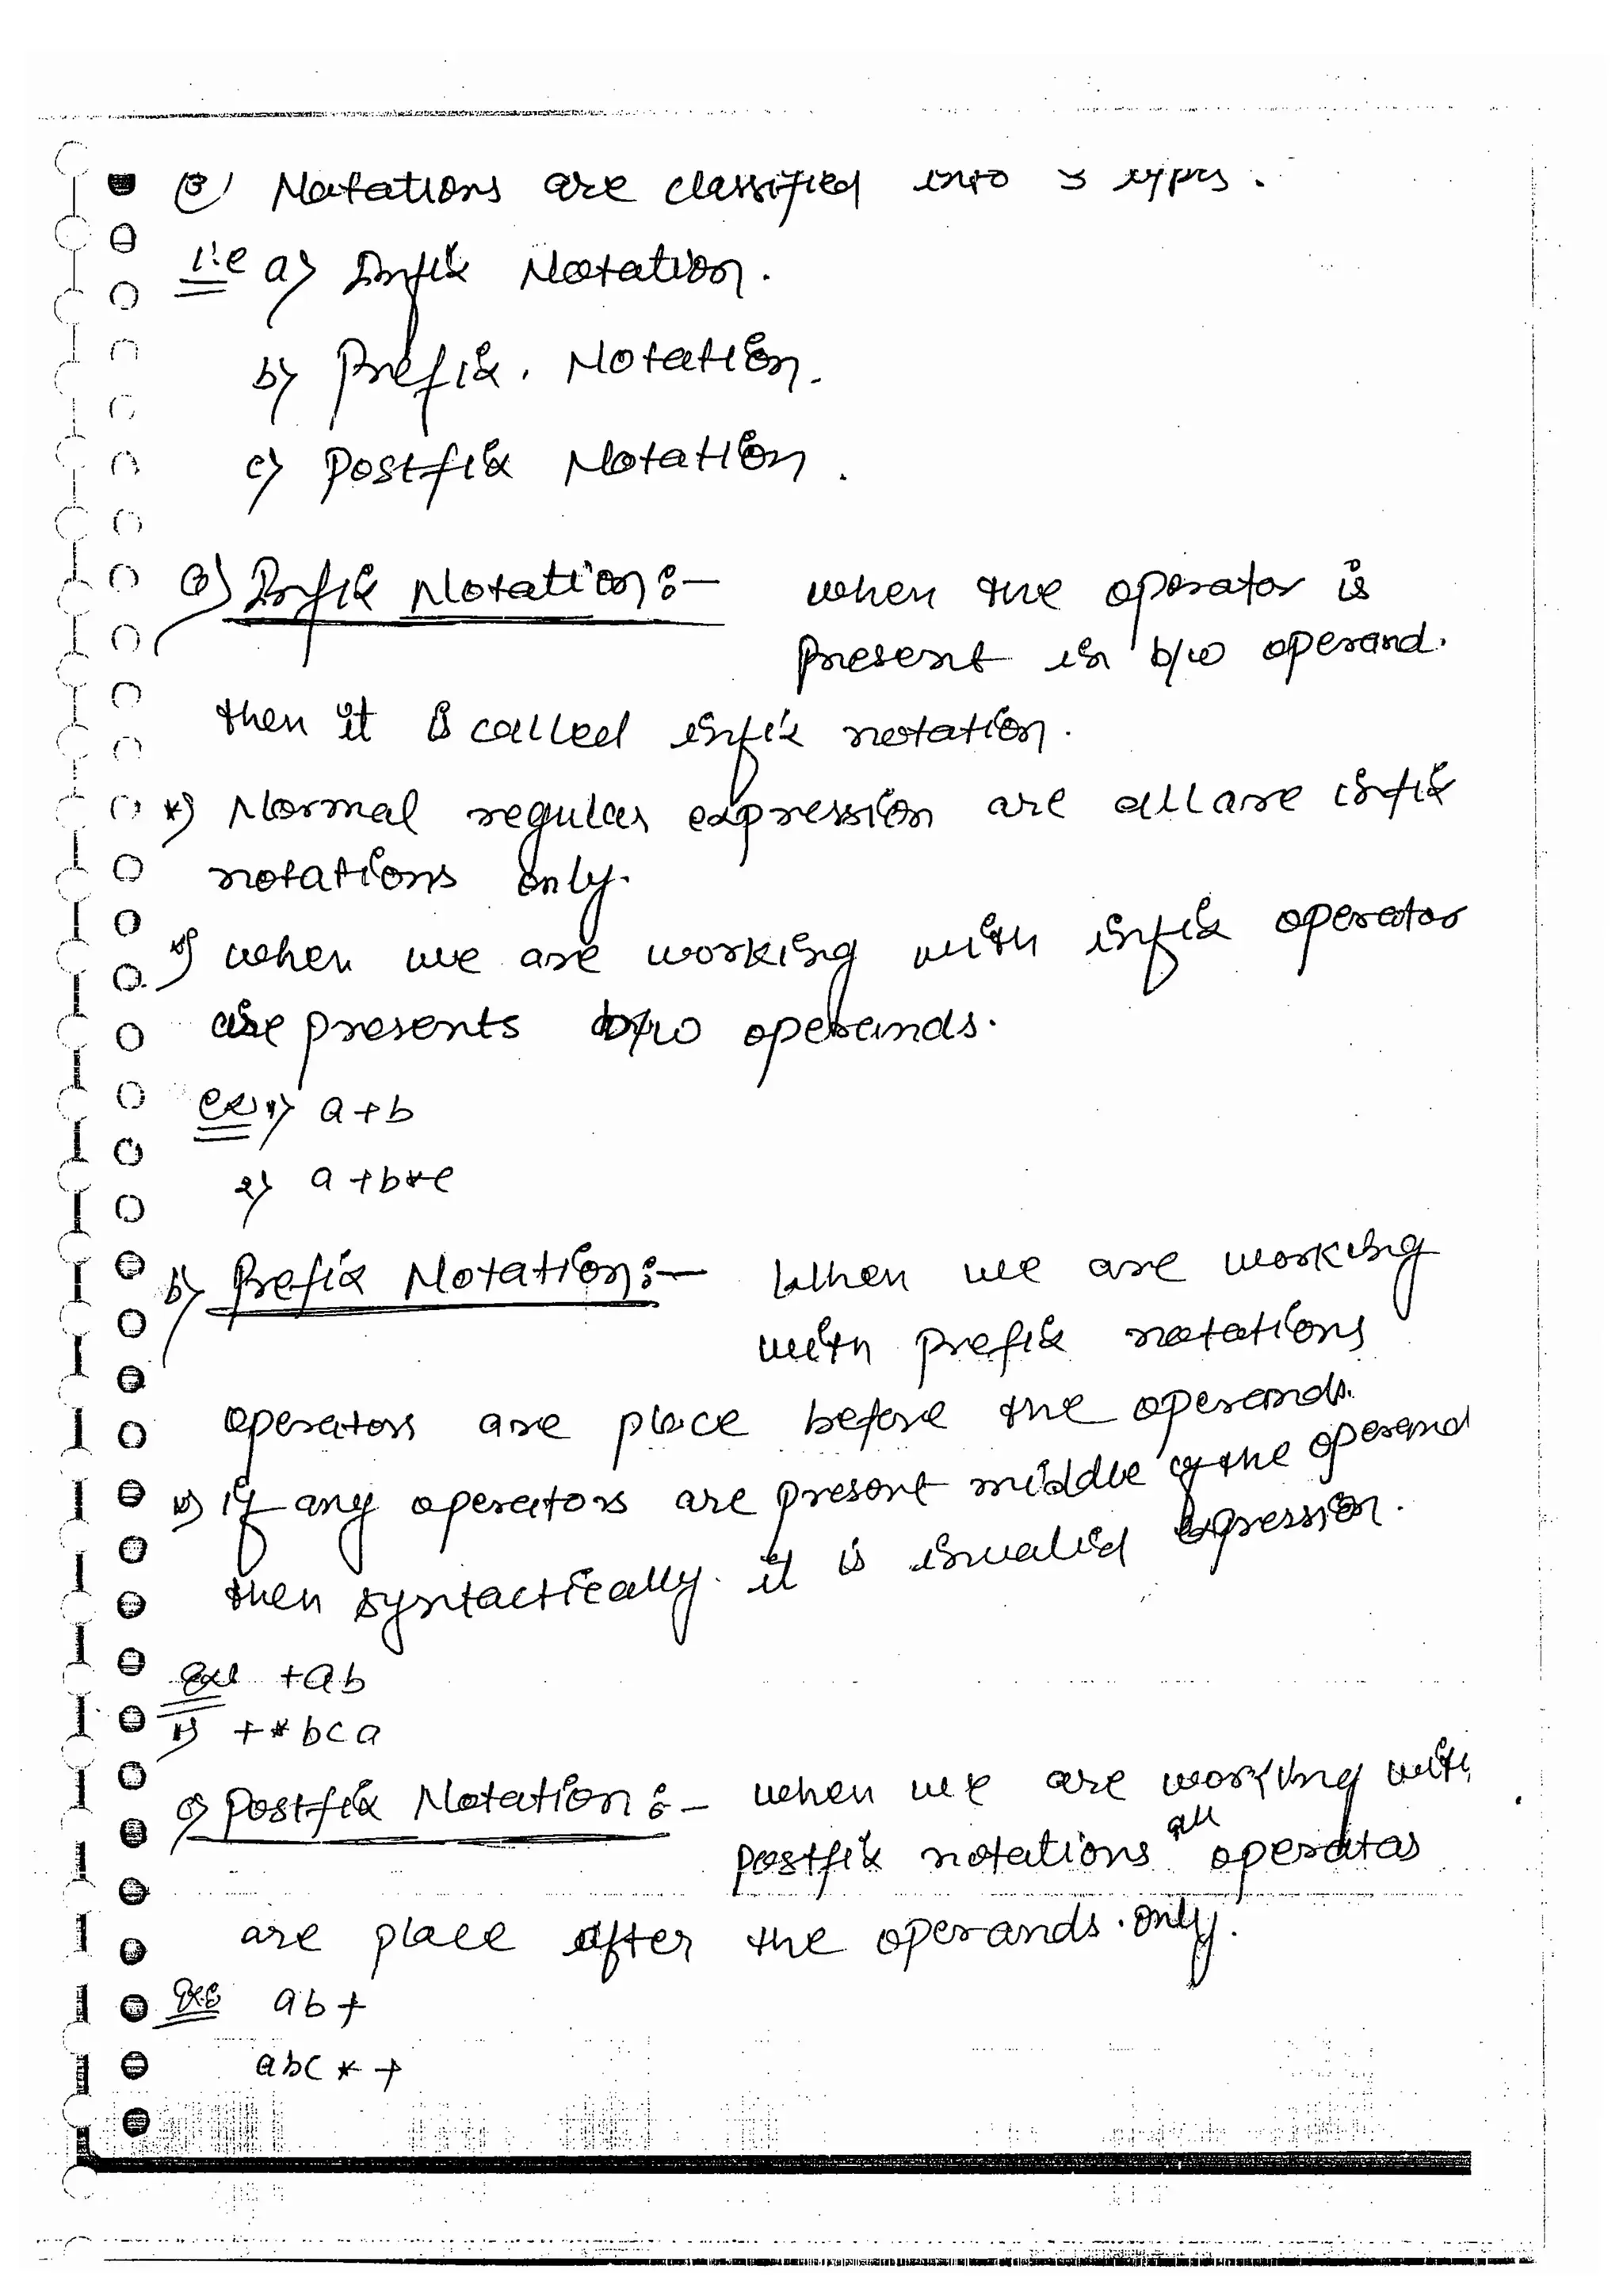 Notations are classified into 3 types.
i.e a) Infix Notation.
b) Prefix. Notation.
c) Postfix Notation.
a) Infix Notation:- when the operator is
present in b/w operand.
then it is called infix notation.
*) Normal regular expression are all are infix
notations only.
*) when we are working with infix operator
are presents b/w operands.
ex: 1) a+b
2) a+b*c
b) Prefix Notation:- When we are working
with prefix notations
operators are place before the operands.
*) if any operators are present middle of the operand
then syntactically. it is invalid Expression.
ex: +ab
+*bca
c) Postfix Notation:- when we are working with
postfix notations all operators
are place after the operands.only.
Ex: ab+
abc*+